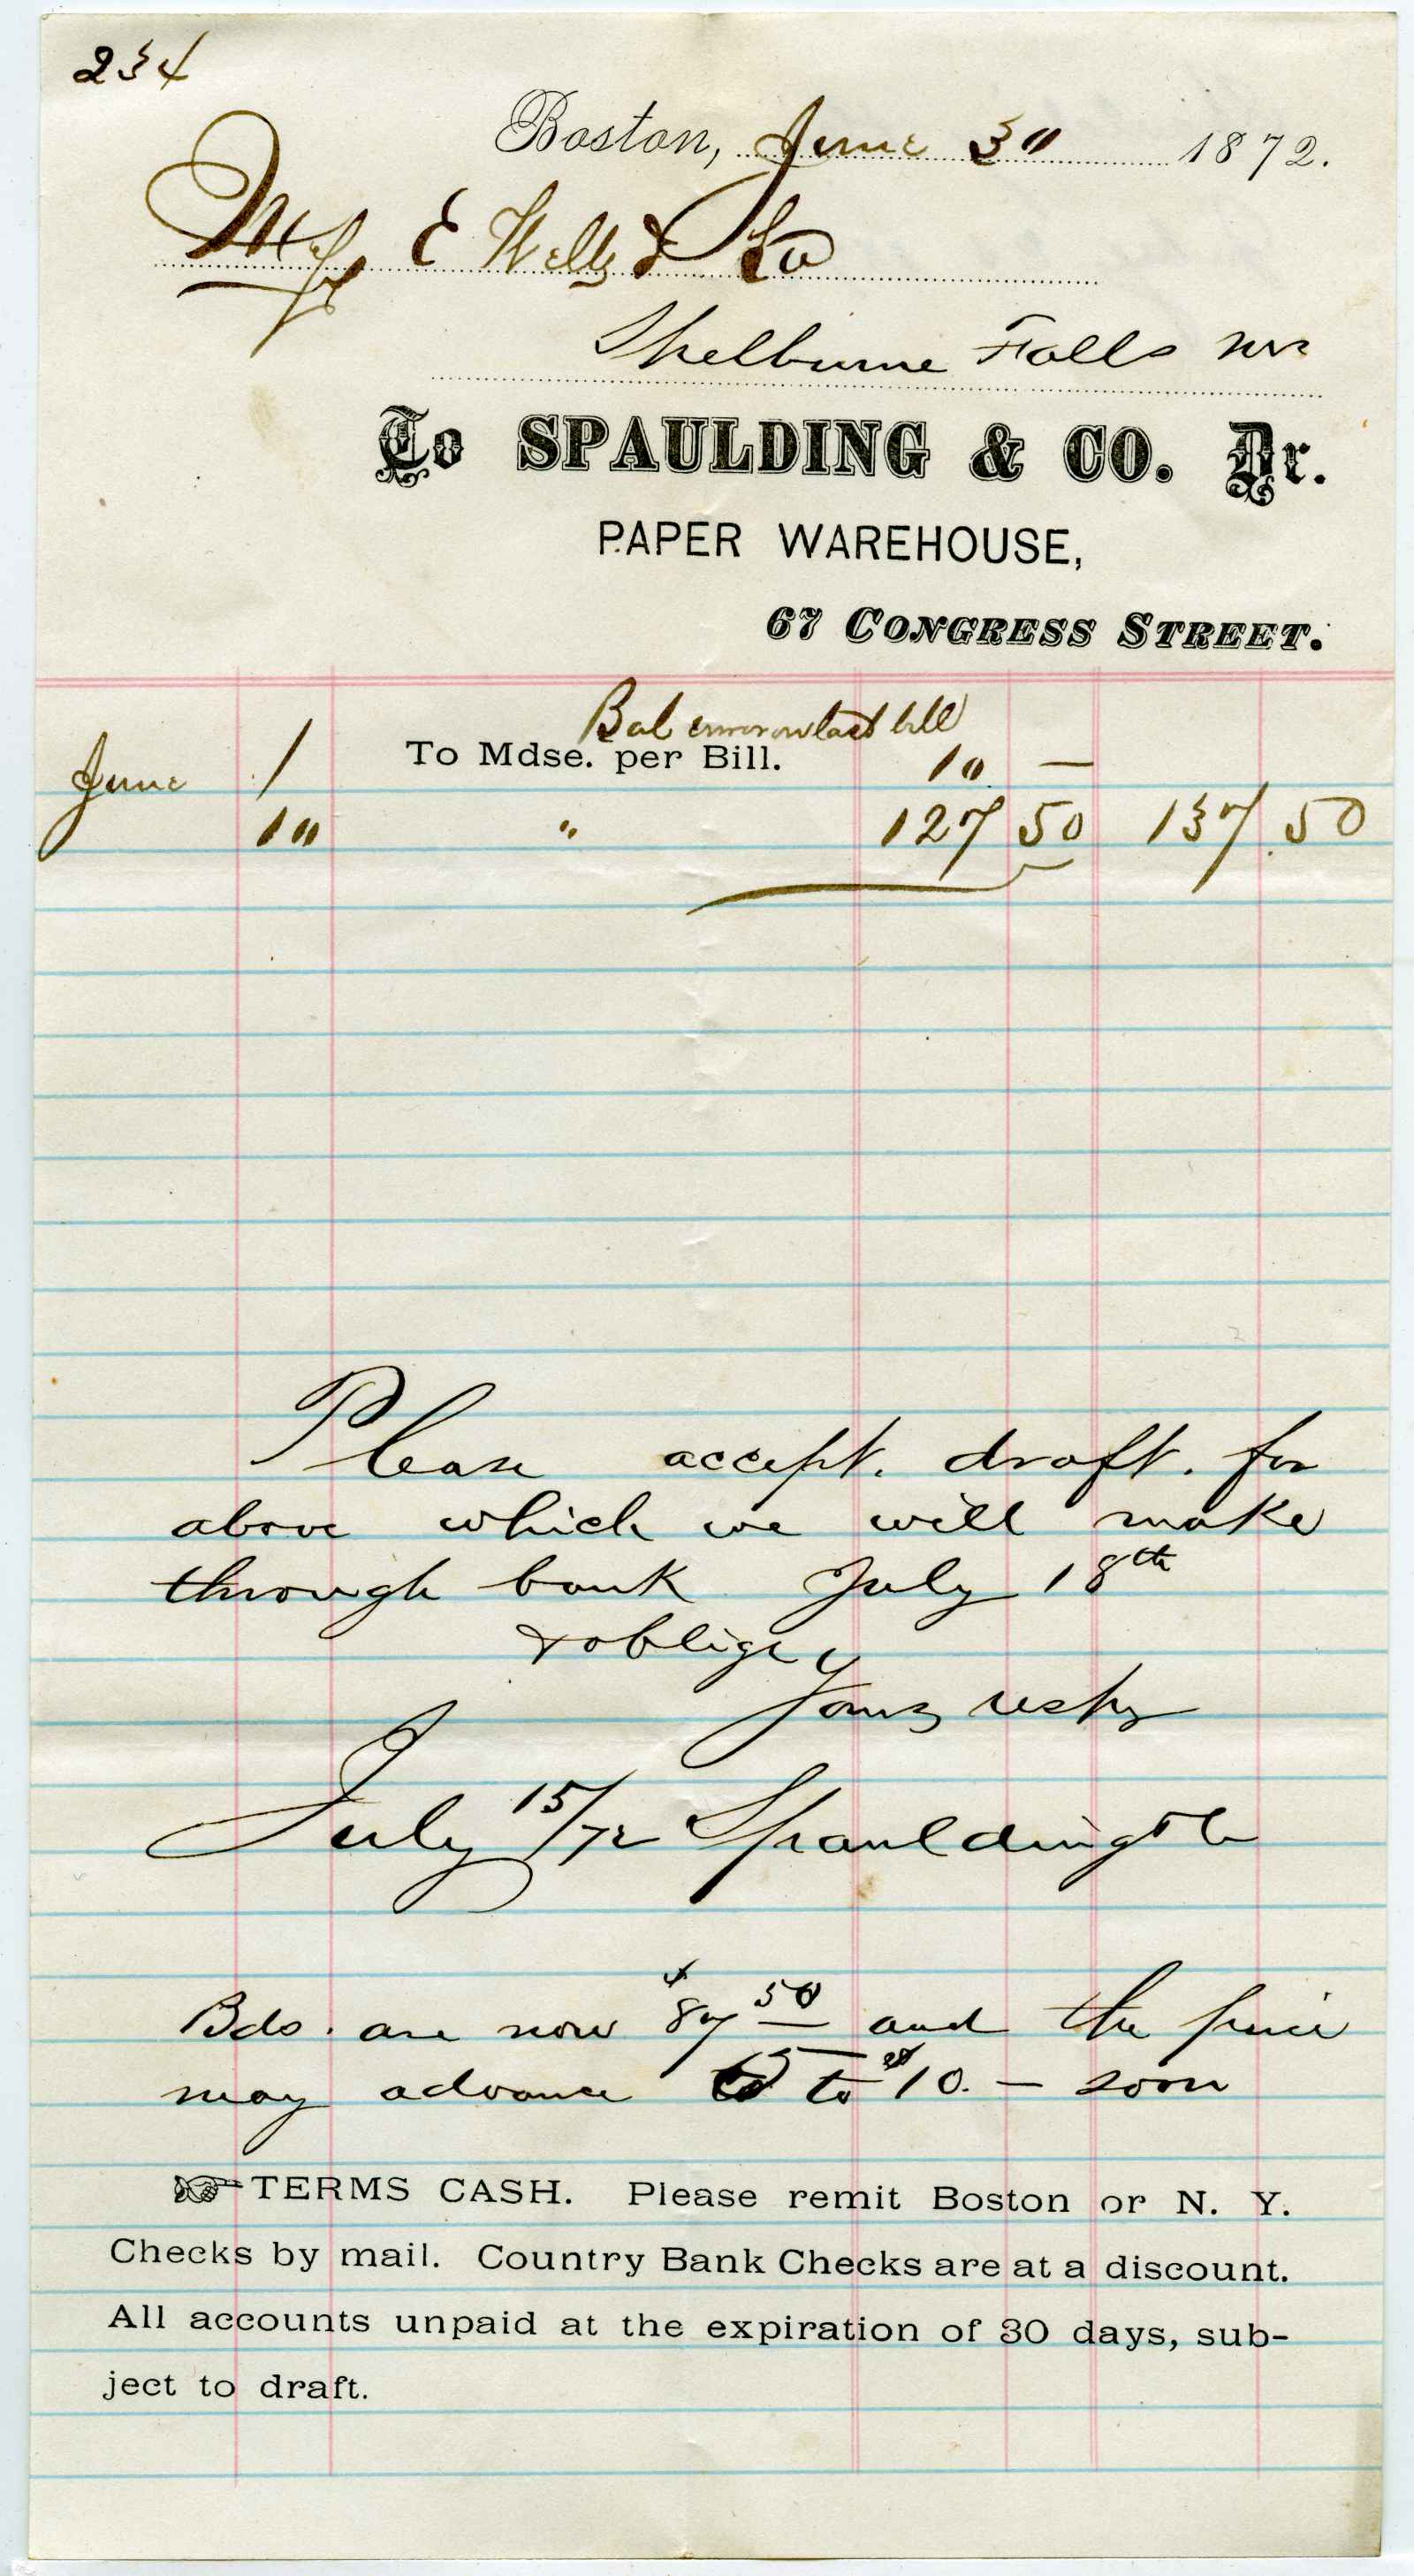 234
Boston, June 30 1872.
E Wells & Co
Shelburne Falls
To SPAULDING & CO. Dr.
PAPER WAREHOUSE,
67 CONGRESS STREET.
Bal error on last bill
June 1 To Mdse. per Bill. 10 —
10 " 127 50 137.50
Please accept. draft. for
above which we will make
through bank July 18th
& oblige
Yours resply
July 15/72 Spaulding & Co
Bds. are now $87 50 and the price
may advance to $10. — soon
TERMS CASH. Please remit Boston or N. Y.
Checks by mail. Country Bank Checks are at a discount.
All accounts unpaid at the expiration of 30 days, sub-
ject to draft.